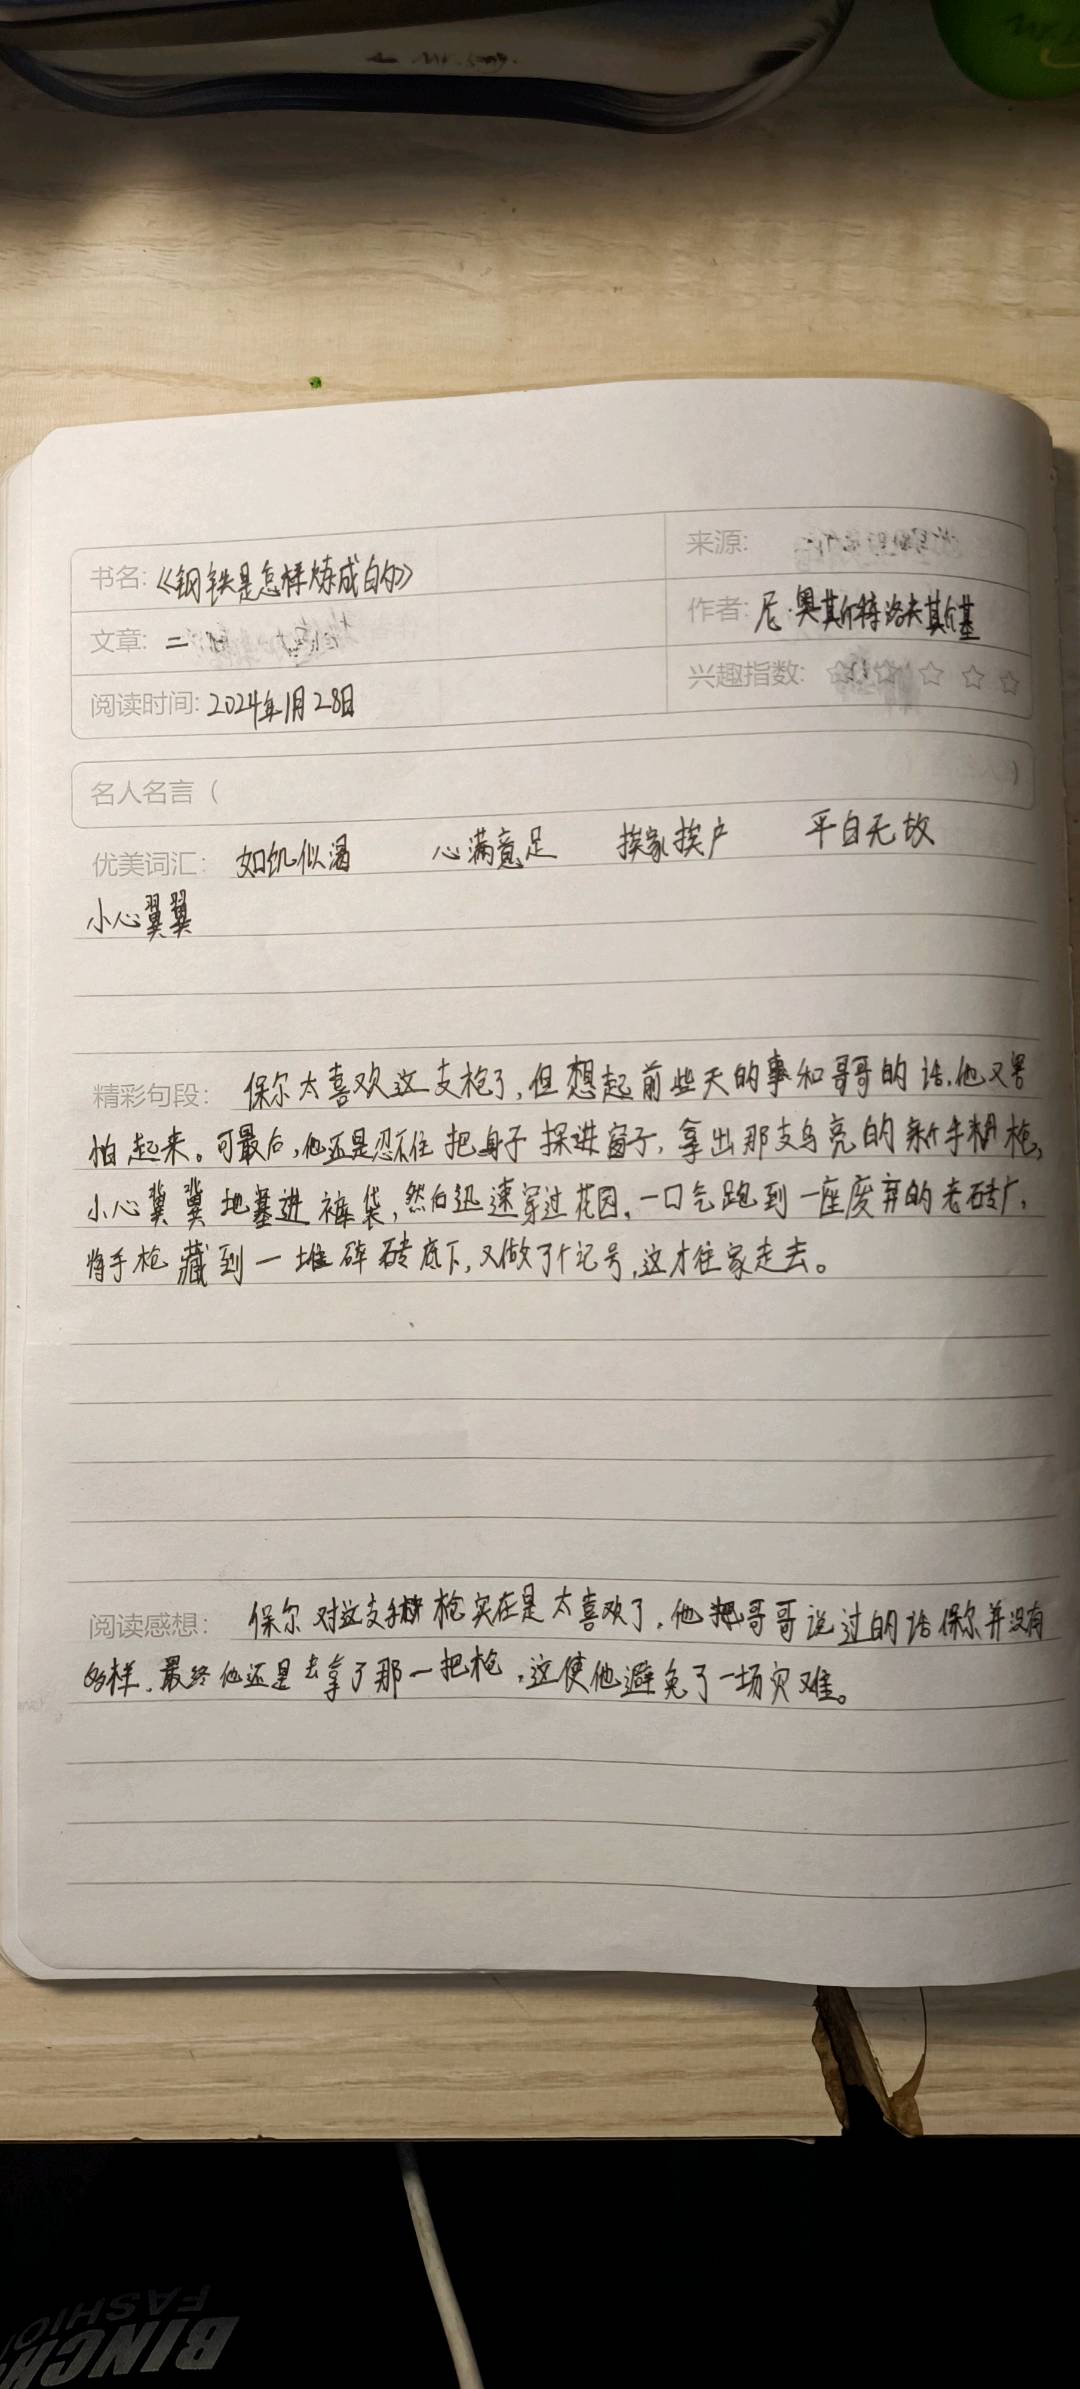 书名: 《钢铁是怎样炼成的》
来源:
作者: 尼·奥斯特洛夫斯基
文章: 二
兴趣指数: ☆ ☆ ☆ ☆ ☆
阅读时间: 2024年1月28日
名人名言 (
)
优美词汇: 如饥似渴 心满意足 挨家挨户 平白无故
小心翼翼
精彩句段: 保尔太喜欢这支枪了,但想起前些天的事和哥哥的话,他又害
怕起来。可最后,他还是忍不住把身子探进窗子,拿出那支乌亮的新手枪,
小心翼翼地塞进裤袋,然后迅速穿过花园,一口气跑到一座废弃的老砖厂,
将手枪藏到一堆碎砖底下,又做了个记号,这才往家走去。
阅读感想: 保尔对这支手枪实在是太喜欢了,他把哥哥说过的话保尔并没有
样,最终他还是去拿了那一把枪,这使他避免了一场灾难。
BINCH
FASHIO